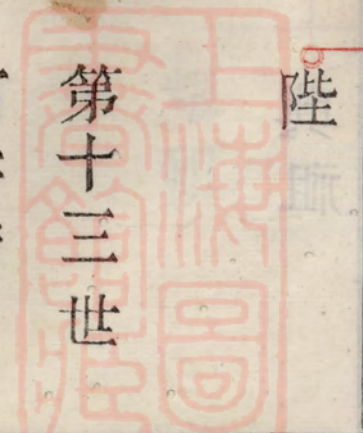 陛
第十三世
上海圖
書館藏